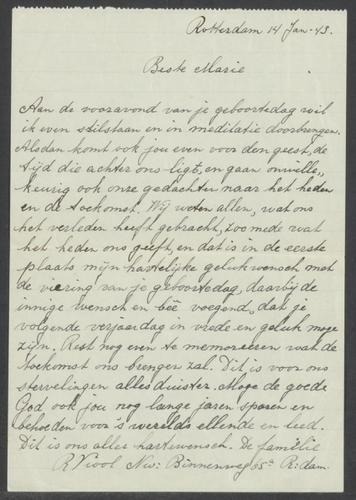 Rotterdam 14 Jan-43.
Beste Marie
Aan de vooravond van je geboortedag wil
ik even stilstaan en in meditatie doorbrengen.
Alsdan komt ook jou even voor den geest, de
tijd die achter ons ligt, en gaan onwille„
keurig ook onze gedachten naar het heden
en de toekomst. Wij weten allen, wat ons
het verleden heeft gebracht, zoo mede wat
het heden ons geeft, en dat is in de eerste
plaats mijn hartelijke gelukwensch met
de viering van je geboortedag, daarbij de
innige wensch en bêe voegend, dat je
volgende verjaardag in vrede en geluk moge
zijn. Rest nog even te memoreeren wat de
toekomst ons brengen zal. Dit is voor ons
stervelingen alles duister. Moge de goede
God ook jou nog lange jaren sparen en
behoeden voor 's werelds ellende en leed.
Dit is ons alles hartewensch. De familie
R Viool Nw: Binnenweg R:dam.